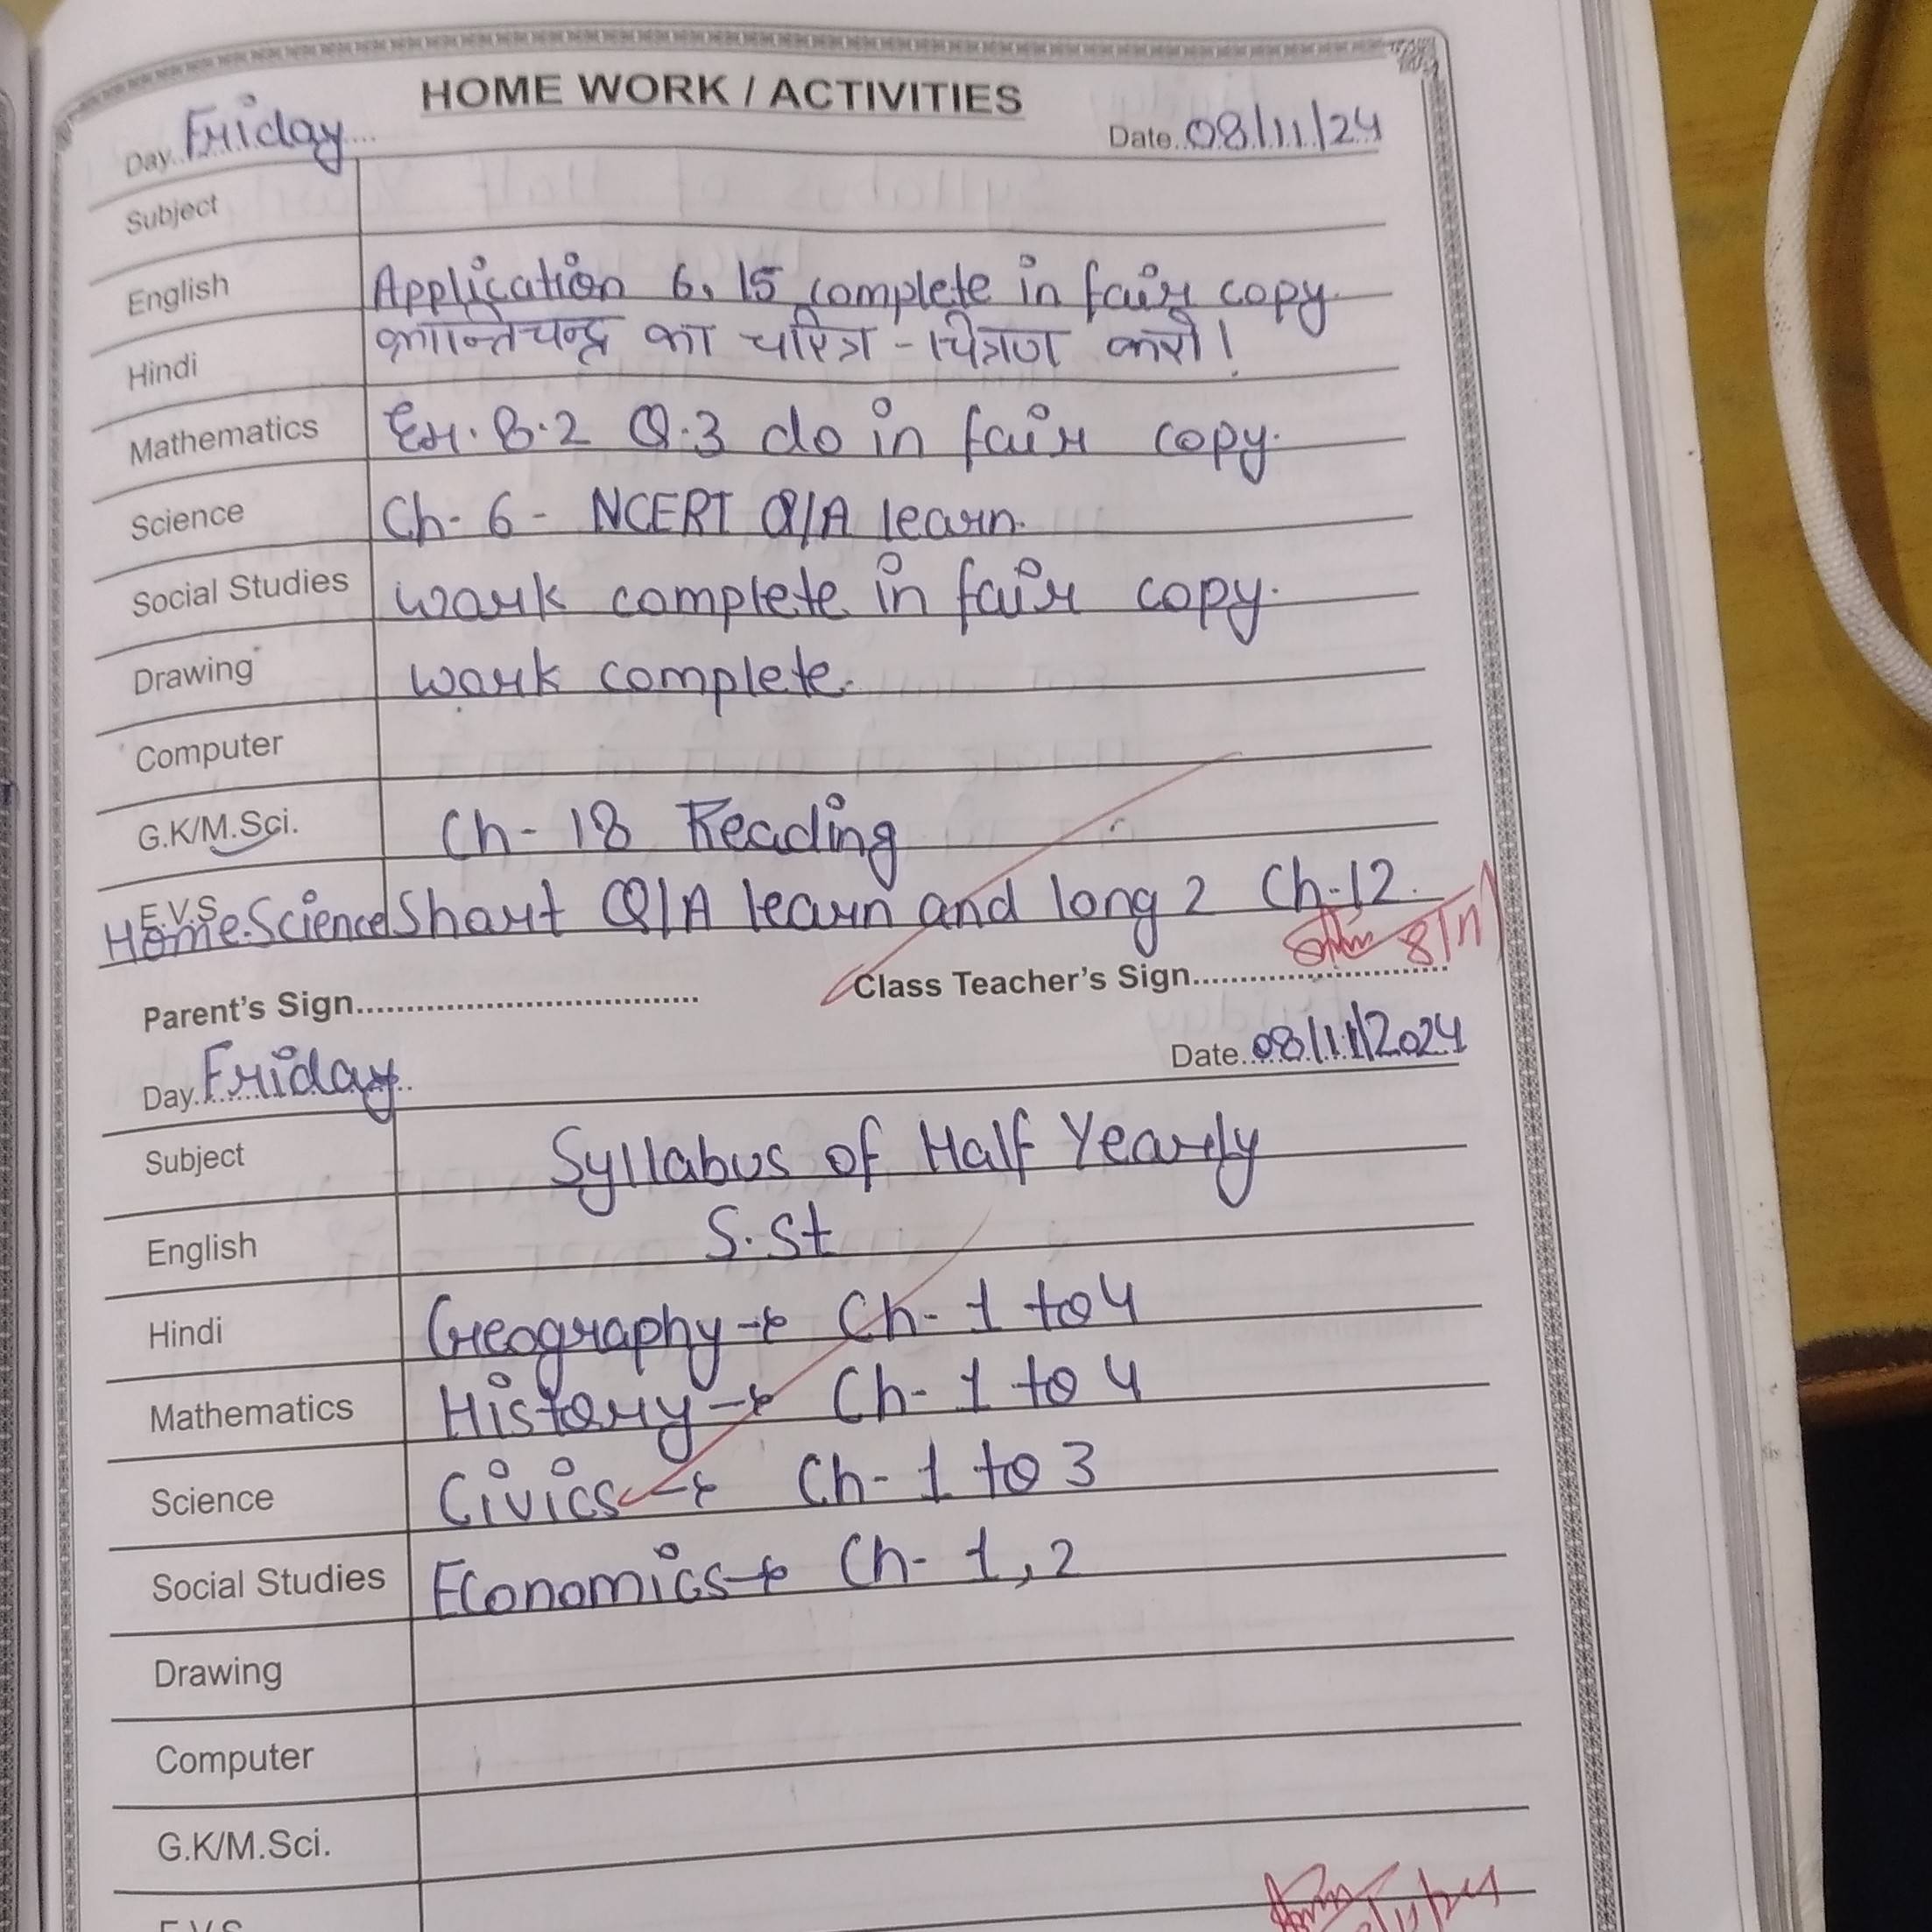 HOME WORK / ACTIVITIES
Day. Friday Date. 08/11/24
Subject
English Application 6, 15 complete in fair copy.
Hindi कान्तिचन्द्र का चरित्र-चित्रण करो।
Mathematics Ex. 8.2 Q.3 do in fair copy.
Science Ch- 6 - NCERT Q/A learn.
Social Studies work complete in fair copy.
Drawing work complete.
Computer
G.K/M.Sci. Ch- 18 Reading
E.V.S
Home.Science Short Q/A learn and long 2 Ch-12.
8/11
Parent's Sign. Class Teacher's Sign.
Day. Friday Date. 08/11/2024
Subject Syllabus of Half Yearly
English S.St
Hindi Geography → Ch- 1 to 4
Mathematics History → Ch- 1 to 4
Science Civics → Ch- 1 to 3
Social Studies Economics → Ch- 1, 2
Drawing
Computer
G.K/M.Sci.
E.V.S